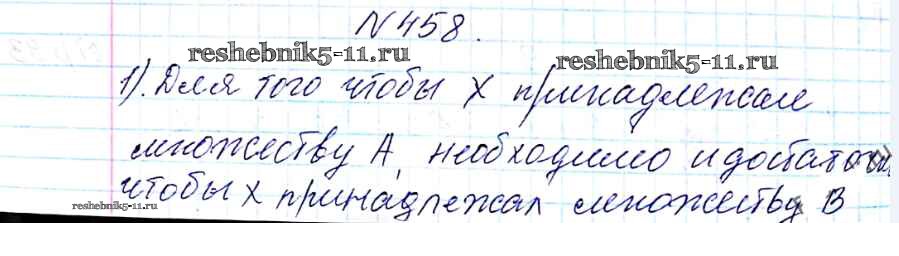 N 458.
reshebnik5-11.ru
reshebnik5-11.ru
1). Для того чтобы X принадлежал
множеству A, необходимо и достаточн
чтобы X принадлежал множеству B
reshebnik5-11.ru